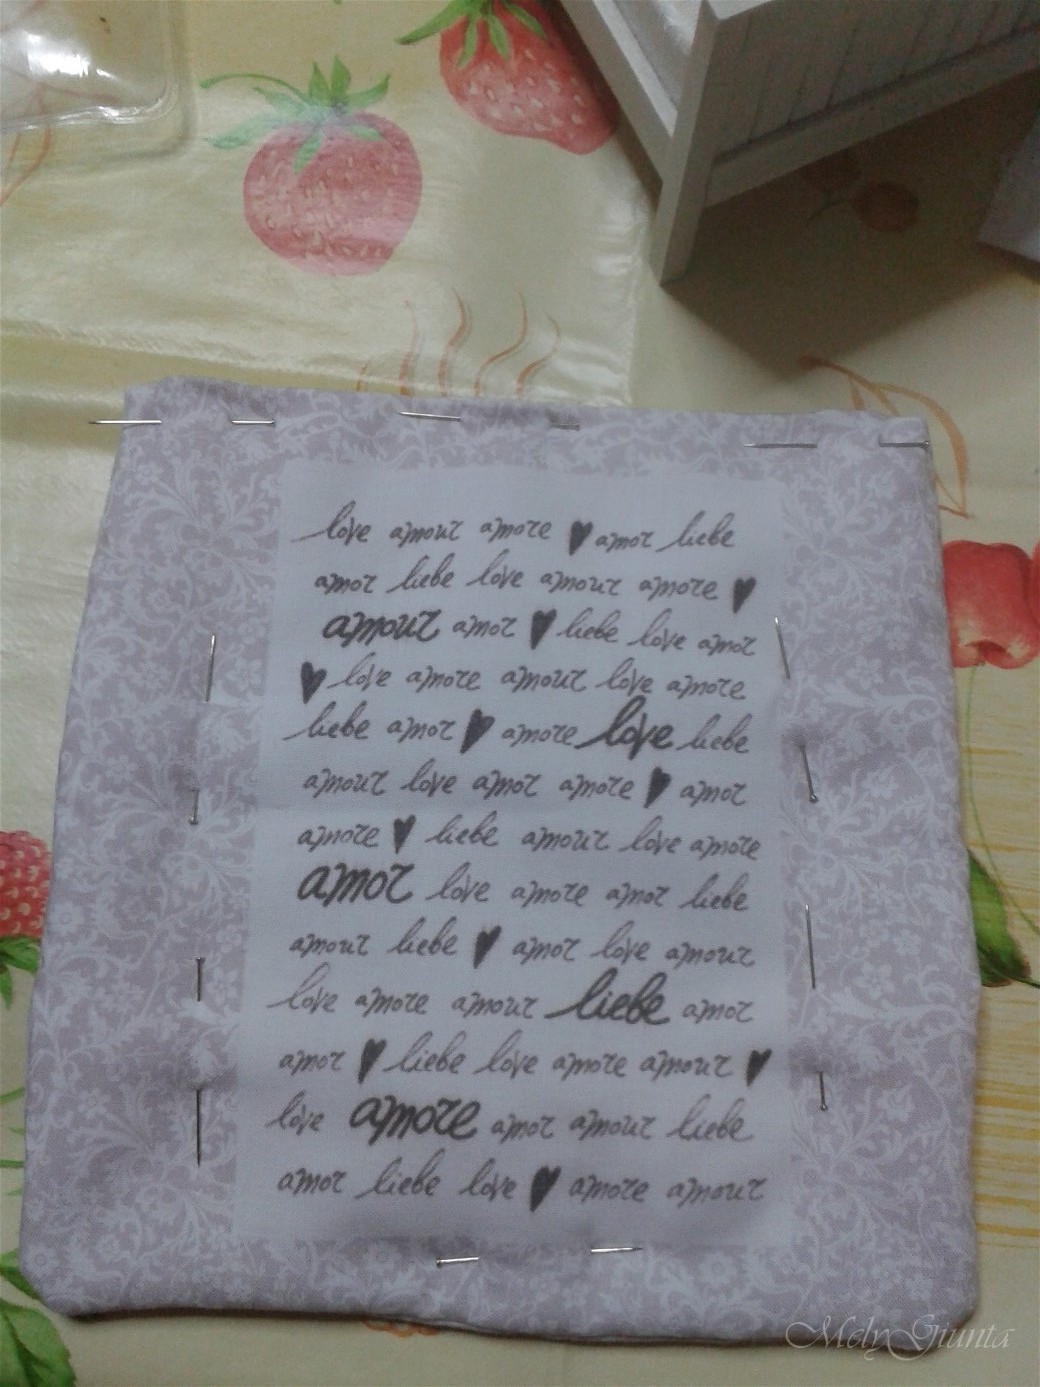 love amour amore ♥ amor liebe
amor liebe love amour amore ♥
amour amor ♥ liebe love amor
♥ love amore amour love amore
liebe amor ♥ amore love liebe
amour love amor amore ♥ amor
amore ♥ liebe amour love amore
amor love amore amor liebe
amour liebe ♥ amor love amour
love amore amour liebe amor
amor ♥ liebe love amore amour ♥
love amore amor amour liebe
amor liebe love ♥ amore amour
MelyGiunta